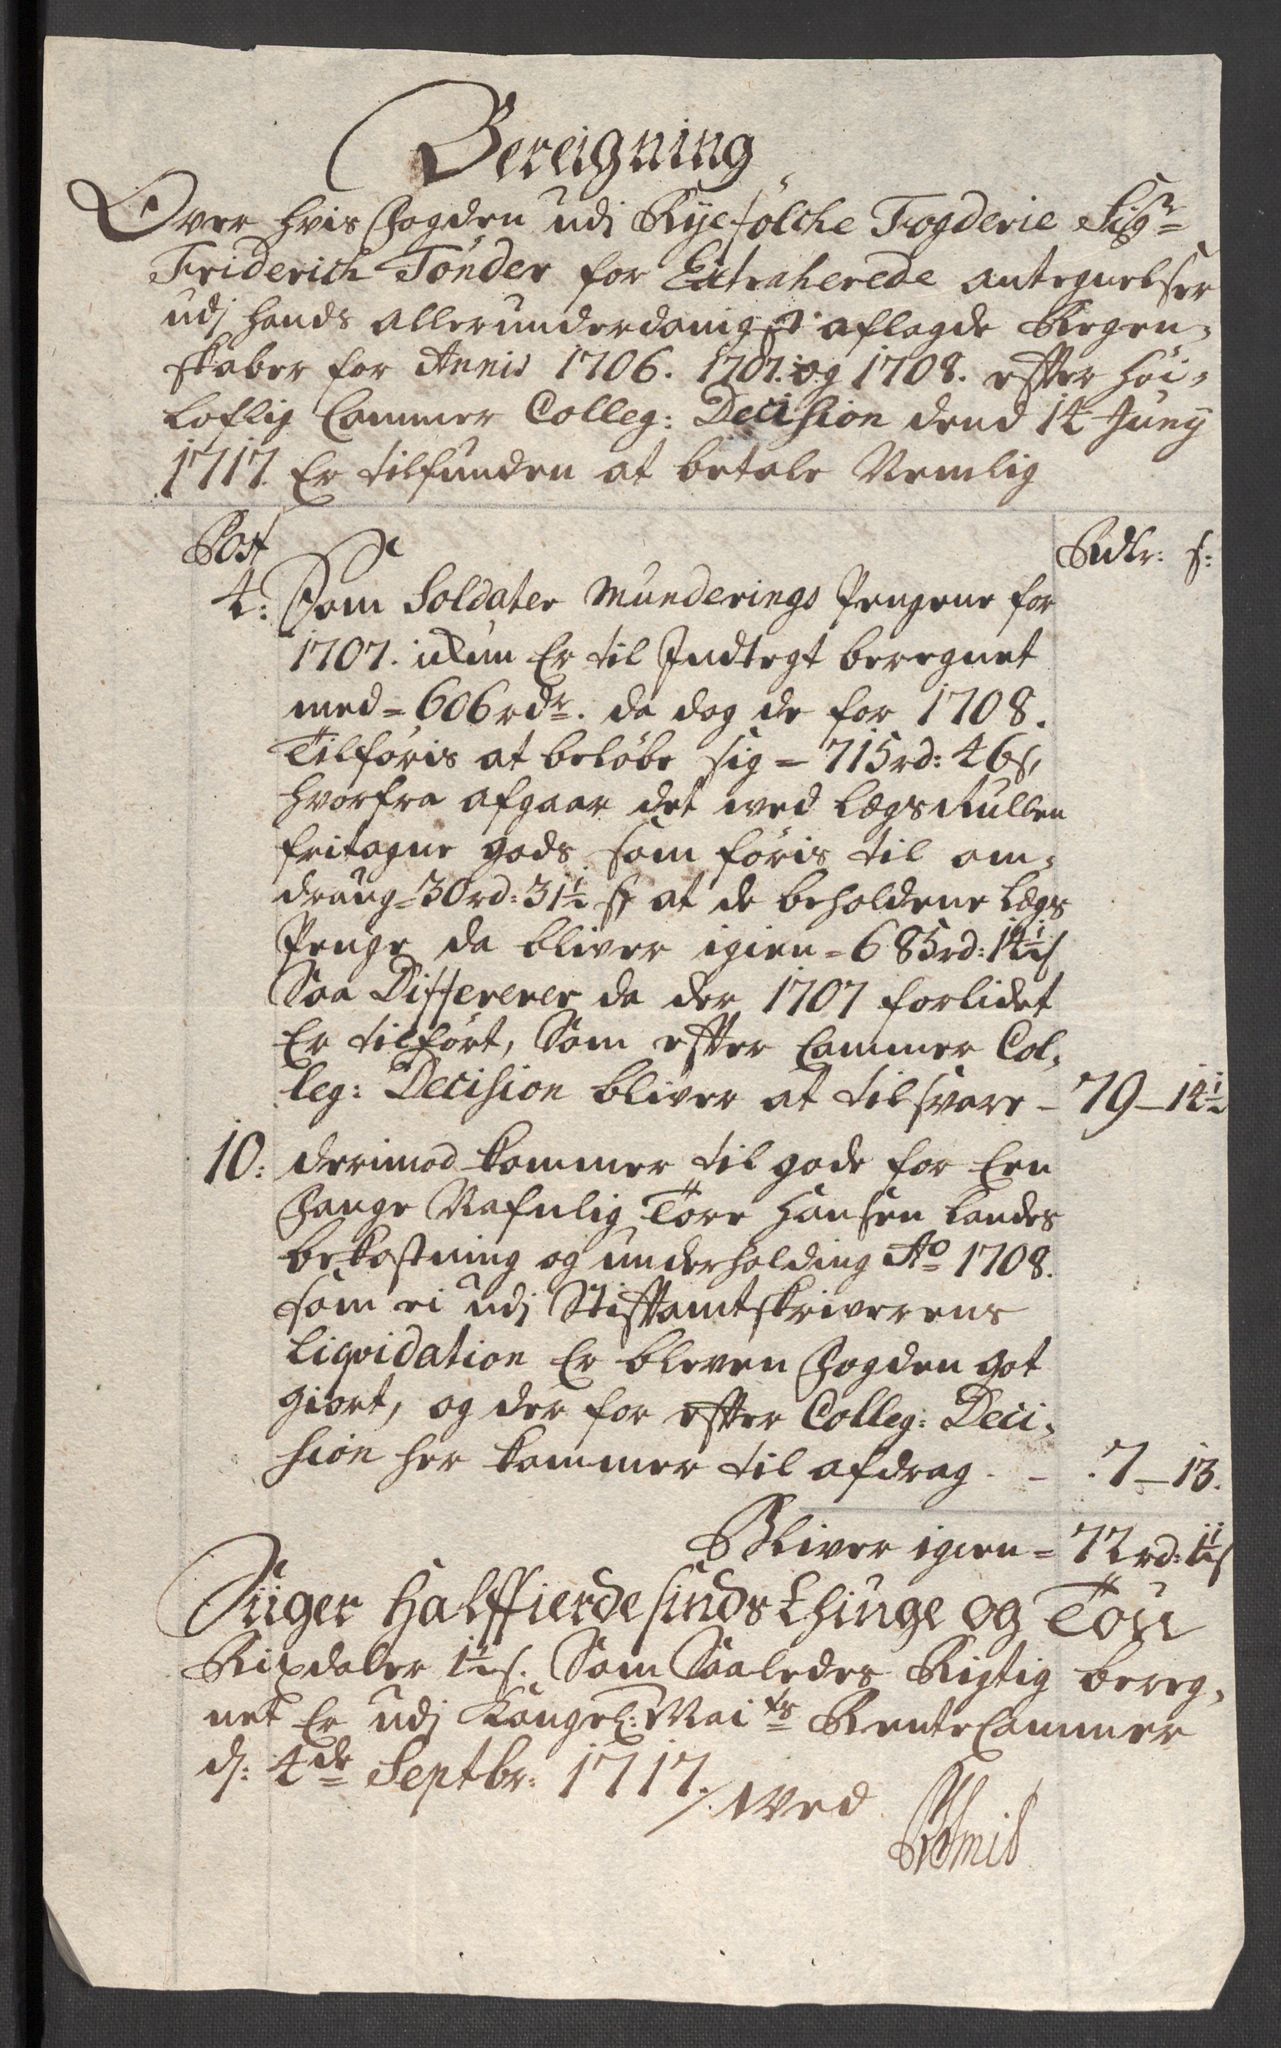 Bereigning
Over hvis Fogden udi Ryefölche Fogderie Sigr
Friderich Tönder for Extraherede antegnelser
udj hands allerunderdanigst aflagde Regen-
skaber for Annis 1706. 1707. og 1708. efter Höi-
loflig Cammer Colleg: Decision dend 14 Juny
1717. Er tilfunden at betale Nemlig
Post Rdlr: s:
4: Som Soldater Munderings Pengene for
1707. ikun Er til Indtegt beregnet
med = 606 rdr. da dog de for 1708.
Tilföris at belöbe sig = 715 rd: 46 s,
hvorfra afgaar det ved Lægs Rullen
fritagne gods som föris til om-
draug = 30 rd: 31½ s at de beholdene Lægs
Penge da bliver igien = 685 rd: 14½ s
Saa Differerer da der 1707 forlidet
Er tilfört, Som efter Cammer Col-
leg: Decision bliver at tilsvare – 79 – 14½
10: derimod kommer til gode for Een
Fange Nafnlig Töre Hansen Landes
bekostning og underholding Ao 1708.
som ei udj Stiftamtskriverens
Liqvidation Er bleven Fogden got
giort, og der for efter Colleg: Deci-
sion her kommer til afdrag – . 7 – 13.
Bliver igien = 72 rd: 1½ s
Siiger Halffierdesindsthiuge og Tou
Rixdaler 1½ s. Som Saaledes Rigtig bereg-
net Er udj Kongel: Maits RenteCammer
d: 4de Septbr: 1717. / Ved
Smid